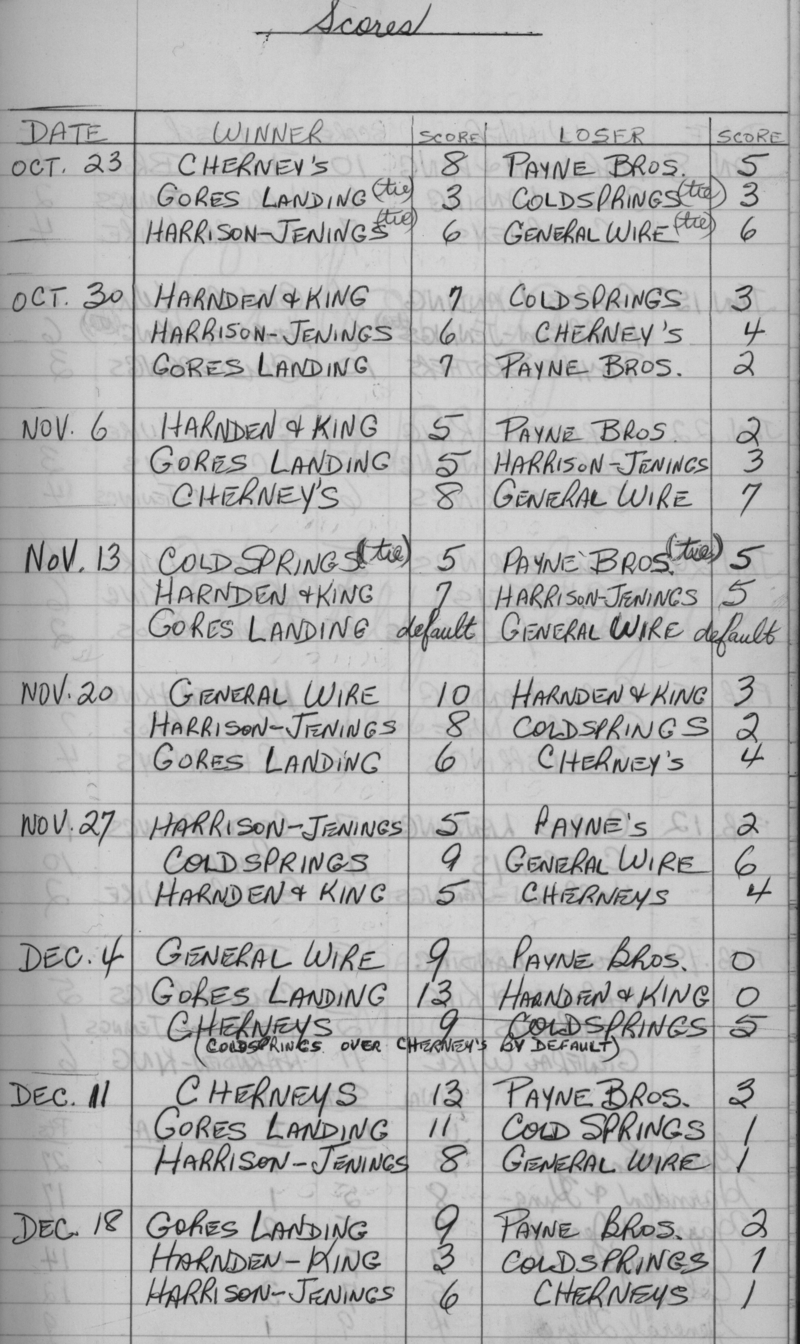 Scores
DATE WINNER SCORE LOSER SCORE
OCT. 23 CHERNEY'S 8 PAYNE BROS. 5
GORES LANDING (tie) 3 COLDSPRINGS (tie) 3
HARRISON-JENINGS (tie) 6 GENERAL WIRE (tie) 6
OCT. 30 HARNDEN & KING 7 COLDSPRINGS 3
HARRISON-JENINGS 6 CHERNEY'S 4
GORES LANDING 7 PAYNE BROS. 2
NOV. 6 HARNDEN & KING 5 PAYNE BROS. 2
GORES LANDING 5 HARRISON-JENINGS 3
CHERNEY'S 8 GENERAL WIRE 7
NOV. 13 COLDSPRINGS (tie) 5 PAYNE BROS. (tie) 5
HARNDEN & KING 7 HARRISON-JENINGS 5
GORES LANDING default GENERAL WIRE default
NOV. 20 GENERAL WIRE 10 HARNDEN & KING 3
HARRISON-JENINGS 8 COLDSPRINGS 2
GORES LANDING 6 CHERNEY'S 4
NOV. 27 HARRISON-JENINGS 5 PAYNE'S 2
COLDSPRINGS 9 GENERAL WIRE 6
HARNDEN & KING 5 CHERNEYS 4
DEC. 4 GENERAL WIRE 9 PAYNE BROS. 0
GORES LANDING 13 HARNDEN & KING 0
CHERNEYS 9 COLDSPRINGS 5
(COLDSPRINGS OVER CHERNEY'S BY DEFAULT)
DEC. 11 CHERNEYS 13 PAYNE BROS. 3
GORES LANDING 11 COLD SPRINGS 1
HARRISON-JENINGS 8 GENERAL WIRE 1
DEC. 18 GORES LANDING 9 PAYNE BROS. 2
HARNDEN-KING 3 COLDSPRINGS 1
HARRISON-JENINGS 6 CHERNEYS 1